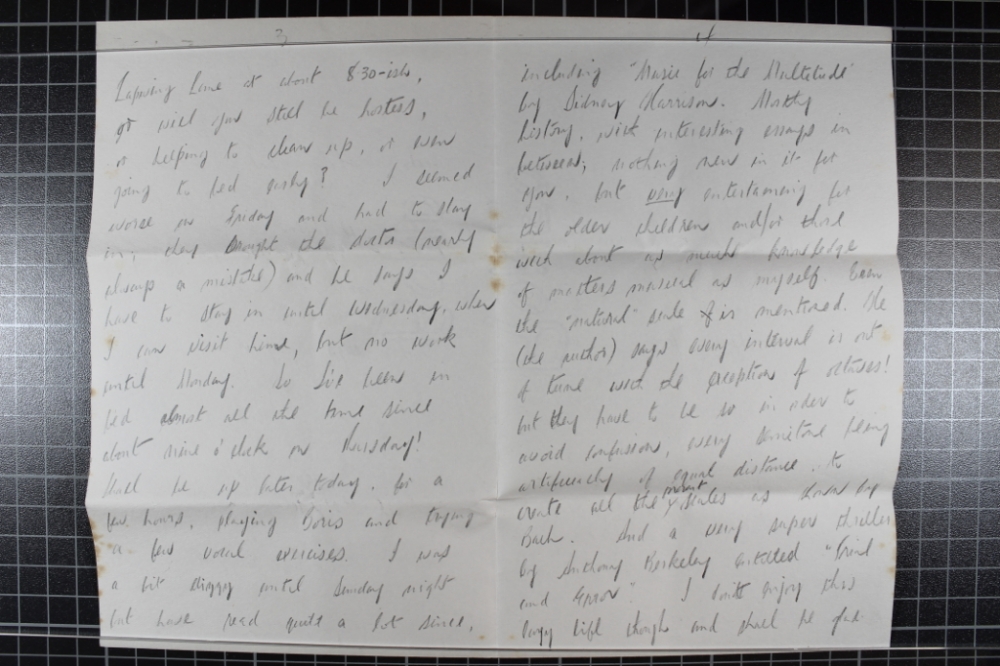 3
Lapwing Lane at about 8.30-ish,
or will you still be hostess,
or helping to clean up, or even
going to bed early? I seemed
worse on Friday and had to stay
in; they brought the doctor (nearly
always a mistake) and he says I
have to stay in until Wednesday, when
I can visit home, but no work
until Monday. So I've been in
bed almost all the time since
about nine o'clock on Thursday!
Shall be up later today, for a
few hours, playing Boris and trying
a few vocal exercises. I was
a bit dizzy until Sunday night
but have read quite a lot since,
4
including "Music for the Multitude"
by Sidney Harrison. Mostly
history, with interesting essays in
between; nothing new in it for
you, but very entertaining for
the older children and/or those
with about as much knowledge
of matters musical as myself. Even
the "natural" scale is mentioned. He
(the author) says every interval is out
of tune with the exception of octaves!
but they have to be so in order to
avoid confusion, every semitone being
artificially of equal distance, to
create all the scales as drawn by
Bach. And a very super thriller
by Anthony Berkeley entitled "Trial
and Error". I don't enjoy this
lazy life though and shall be glad